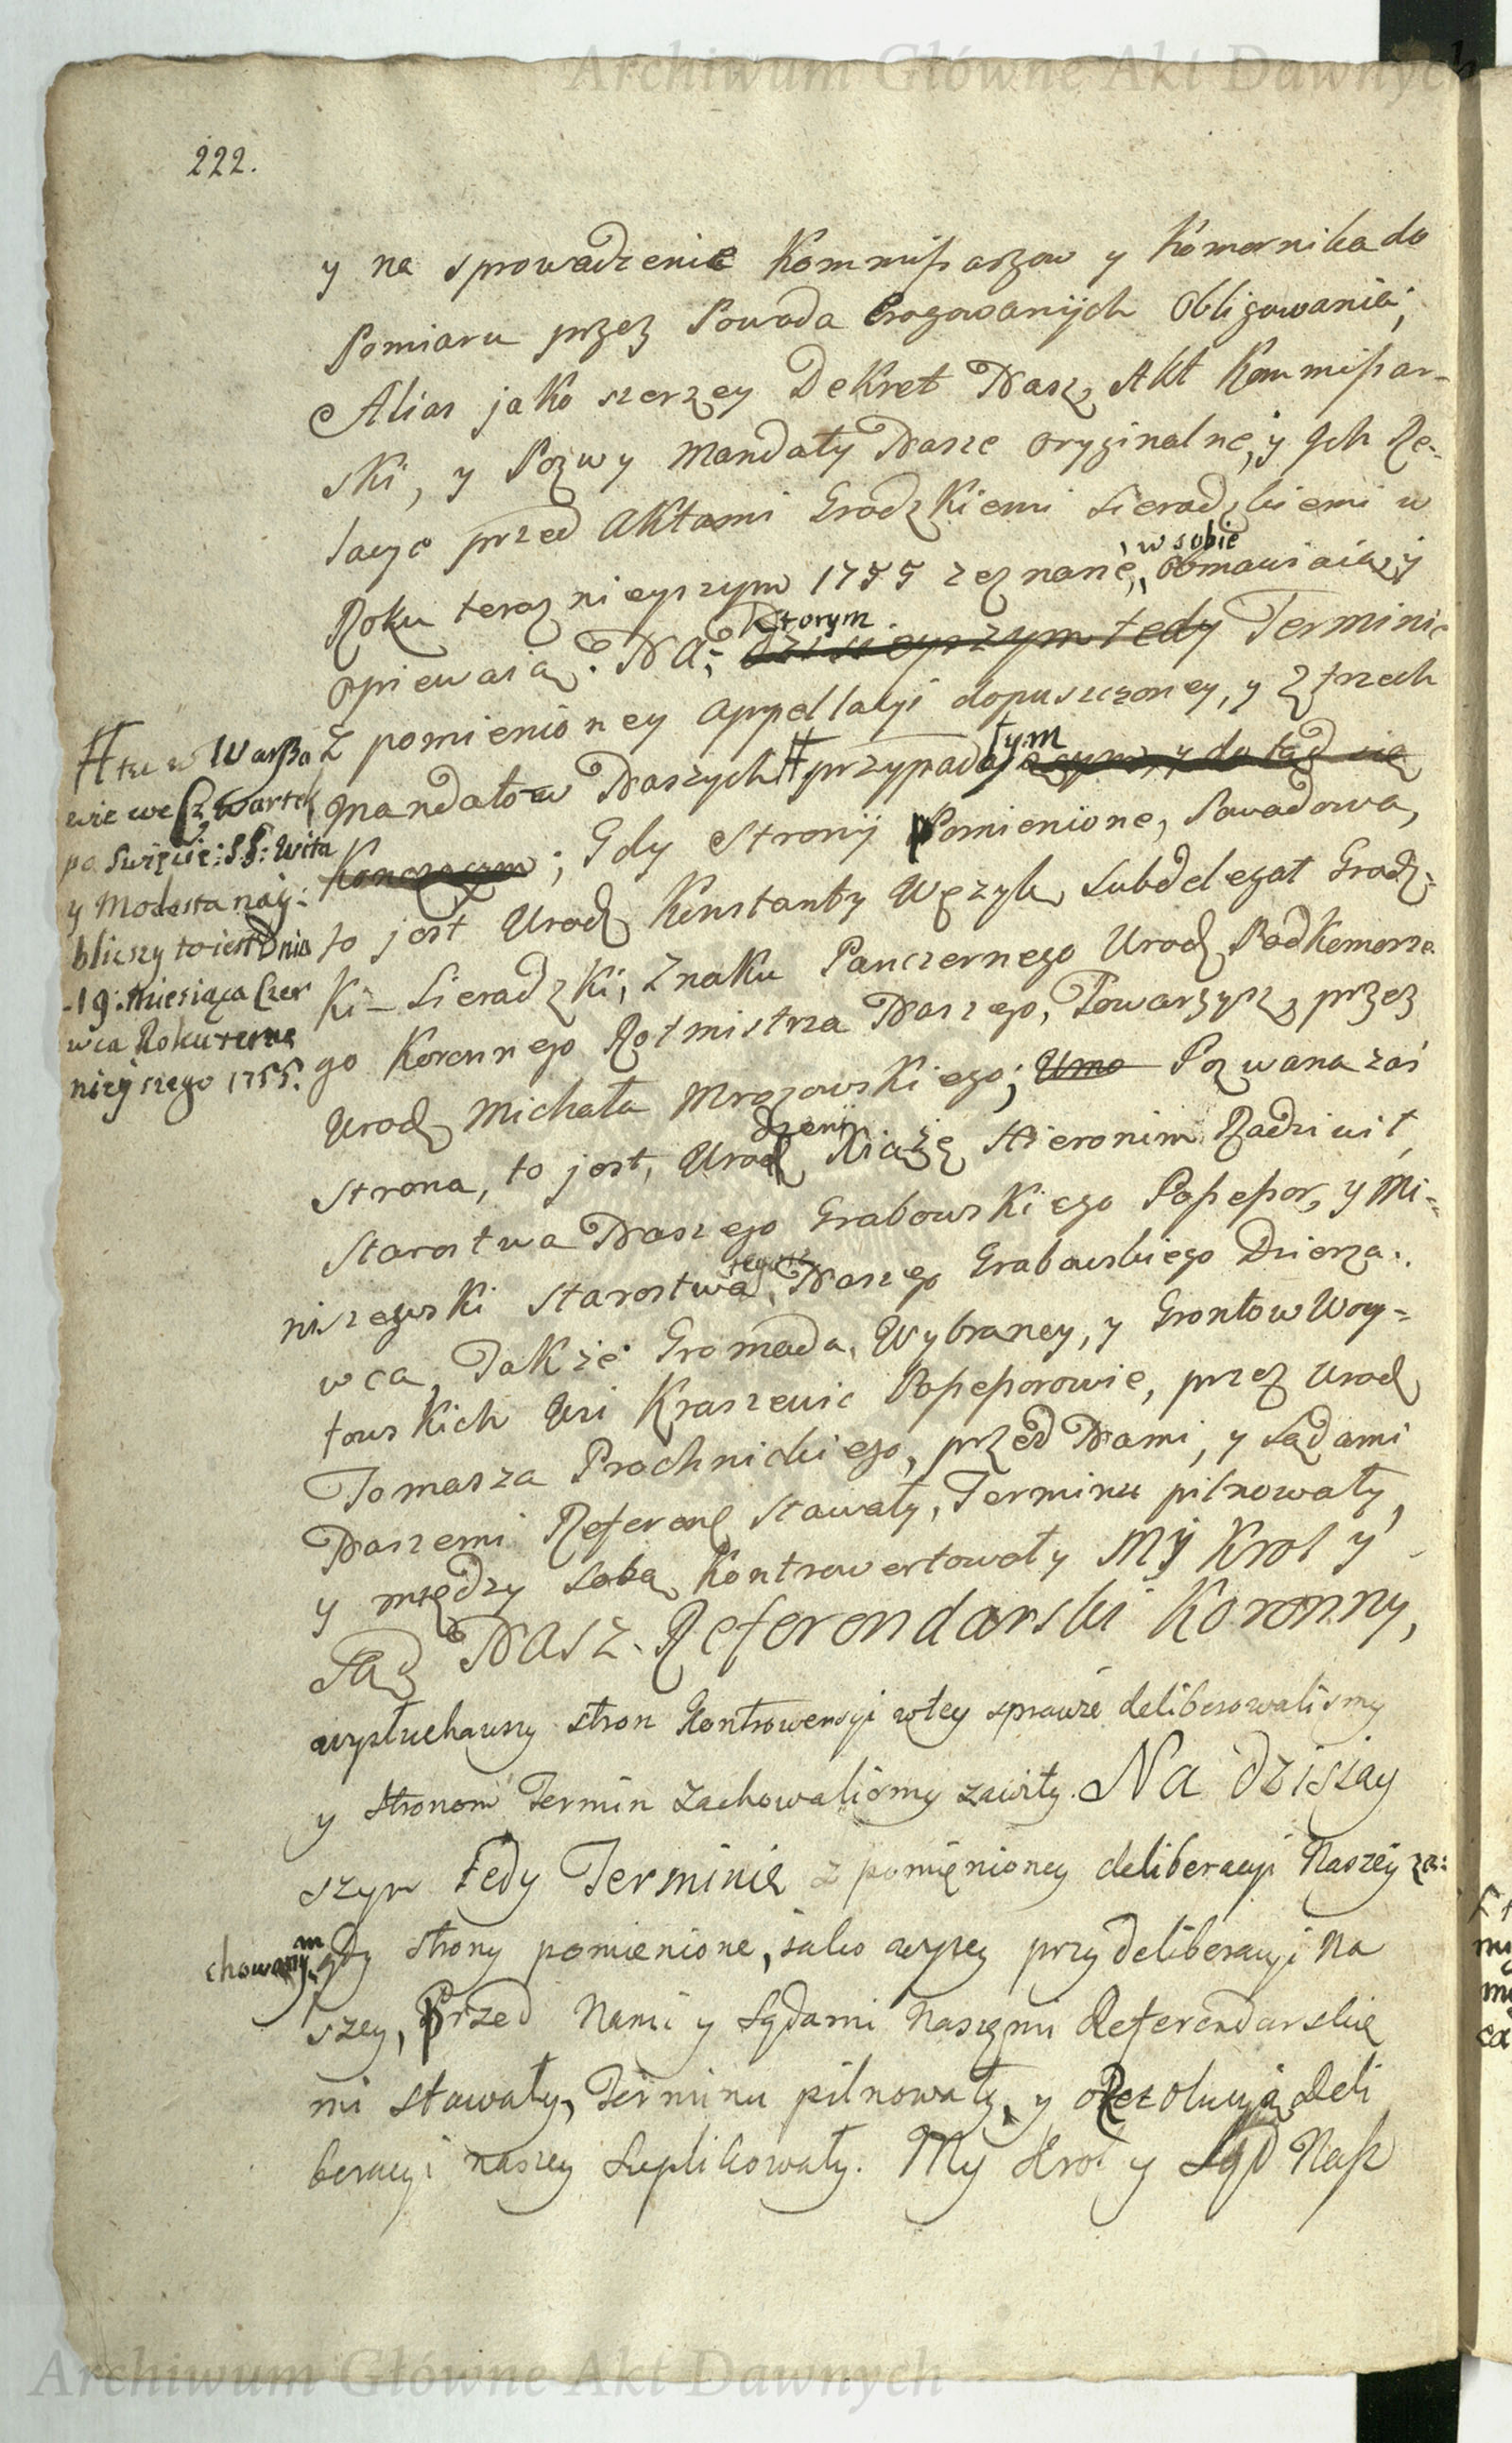 Archiwum Główne Akt Dawnych
222.
y na sprowadzenie Kommissarzow y Komornika do
Pomiaru przez Powoda Erogowanych Obligowania;
Alias jako szerzey Dekret Nasz, Akt Kommissar-
ski, y Pozwy Mandaty Nasze oryginalne, y Jch Re-
lacye przed Aktami Grodzkiemi Sieradzkiemi w
Roku teraznieyszym 1755 zeznane, w sobie obmawiaią, y
opiewaią. NA: Ktorym dzisieyszym tedy Terminie
z pomienioney appellacyi dopuszczoney, y z trzech
mandatow Naszych # przypadaiącym, tym y do tąd się
Konczącym; Gdy Strony Pomienione, Powodowa,
to jest Urodz Konstanty Wężyk, Subdelegat Grodz-
Ki Sieradzki, Znaku Pancernego Urodz Podkomorze
go Koronnego Rotmistrza Naszego, Towarzysz, przez
Urodz Michała Mrozowskiego; Umo Pozwana zaś
Strona, to jest, Urodzeni Xiążę Hieronim Radziwił
Starostwa Naszego Grabowskiego Possessor, y Mi-
niszewski Starostwa tegoż Naszego Grabowskiego Dzierza-
wca, Także Gromada, Wybraney, y Grontow Woy-
towskich Wsi Kraszewic Possessorowie, przez Urodz
Tomasza Prochnickiego, przed Nami, y Sądami
Naszemi Referend stawały, Terminu pilnowały,
y między sobą Kontrowertowały MY Krol y
Sąd NASZ Referendarski Koronny,
wysłuchawszy stron Kontrowersyi w tey sprawie deliberowalismy
y stronom Termin zachowalismy zawity. Na Dzisiay
szym Tedy Terminie z pomienioney deliberacyi Naszey za:
chowanym gdy strony pomienione, iako wyżey przy deliberacyi Na
szey, Przed Nami y Sądami Naszemi Referendarskie
mi stawały, Terminu pilnowały, y o Rezolucyą Deli
beracyi naszey Suplikowały. My Krol y Sąd Nasz
# tu w Warsza
wie we Czwartek
po Swięcie: SS: Wita
y Modesta nay:
bliszy to iest Dnia
19. Miesiąca Czer
wca Roku teraz
nieyszego 1755.
Archiwum Główne Akt Dawnych